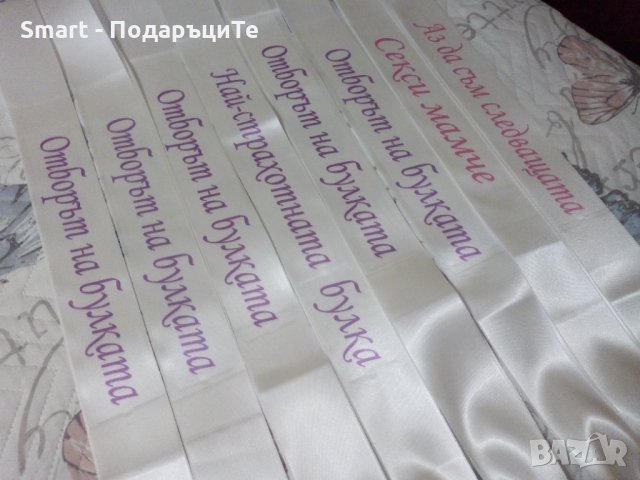 Smart - ПодаръциТе
Отборът на булката
Отборът на булката
Отборът на булката
Най-страхотната булка
Отборът на булката
Отборът на булката
Секси мамче
Аз да съм следващата
BAZAR